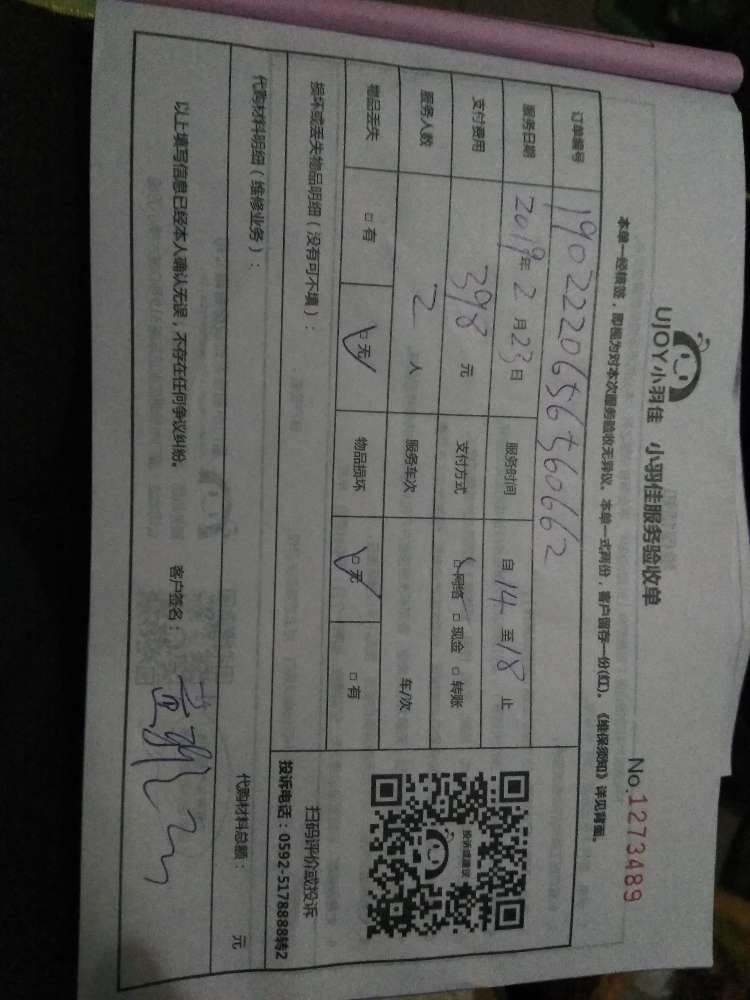 UJOY小羽佳 小羽佳服务验收单
No.1273489
本单一经核签，即视为对本次服务验收无异议。本单一式两份，客户留存一份(红)。《维保须知》详见背面。
订单编号 190222206565660662
服务日期 2019年2月23日 服务时间 自14至18止
支付费用 398元 支付方式 ☑网络 □现金 □转账
服务人数 2人 服务车次 车/次
物品丢失 □有 ☑无 物品损坏 ☑无 □有
损坏或丢失物品明细（没有可不填）：
投诉或建议
扫码评价或投诉
投诉电话：0592-5178888转2
代购材料明细（维修业务）：
代购材料总额： 元
以上填写信息已经本人确认无误，不存在任何争议纠纷。 客户签名：